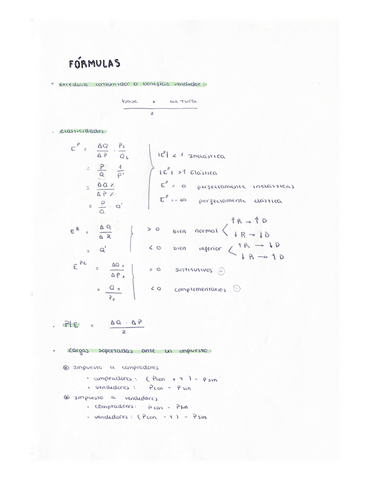 FÓRMULAS
· Excedente consumidor o beneficio vendedor:
base × altura
2
· Elasticidades
E^P = ΔQ/ΔP · P₁/Q₁ |E^P| < 1 Inelástica
= P/Q · 1/P' |E^P| > 1 Elástica
= ΔQ%/ΔP% E^P = 0 perfectamente inelástica
= P/Q · Q' E^P = ∞ perfectamente elástica
E^R = ΔQ/ΔR > 0 bien normal ↑R → ↑D
↓R → ↓D
= Q' < 0 bien inferior ↑R → ↓D
↓R → ↑D
ΔQ > 0 sustitutivos
< 0 complementarios
= ΔQ · ΔP
2
· Cargas soportadas ante un impuesto
Impuesto a compradores
· compradores: (Pcon + T) - Psin
· vendedores: Pcon - Psin
Impuesto a vendedores
· compradores: Pcon - Psin
· vendedores: Pcon - Psin